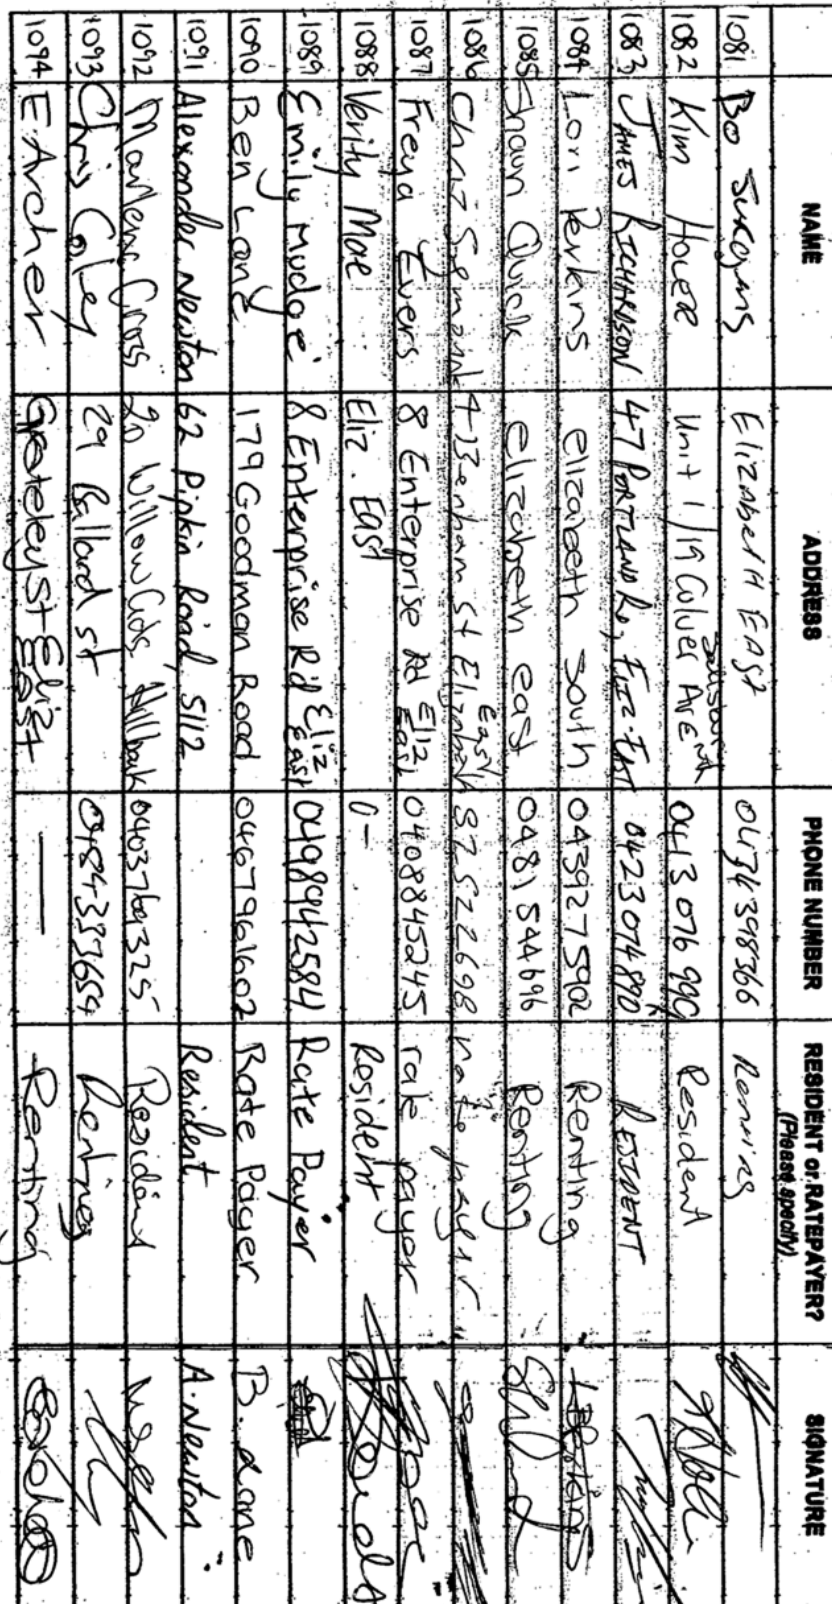 NAME ADDRESS PHONE NUMBER RESIDENT or RATEPAYER? (Please specify) SIGNATURE
1081 Bo Elizabeth East
1082 Kim Unit 1/19 Culver Ave 0413 076 990 Resident
1083 JAMES RICHARDSON 47 PORTLAND RD, ELIZ. EAST 0423 074 890 RESIDENT
1084 Lori Perkins elizabeth south 0439275902 Renting
1085 Shaun Quick elizabeth east 0481544696 Renting
1086 Chris 4 Benham St Elizabeth East 82522698 rate payer
1087 Freya Evers 8 Enterprise Rd Eliz East 0408845245 rate payer
1088 Verity Mae Eliz. East 0- Resident
1089 Emily Mudge 8 Enterprise Rd Eliz East 0498942584 Rate Payer
1090 Ben Lane 179 Goodman Road 0467961602 Rate Payer B. Lane
1091 Alexander Newton 62 Pipkin Road, 5112 Resident A. Newton
1092 Cross 20 Willow Gds Hillbank Resident
1093 Chris Coley 29 Ballard St 0484333654 Renting
1094 E. Archer Grateley St Eliz East — Renting